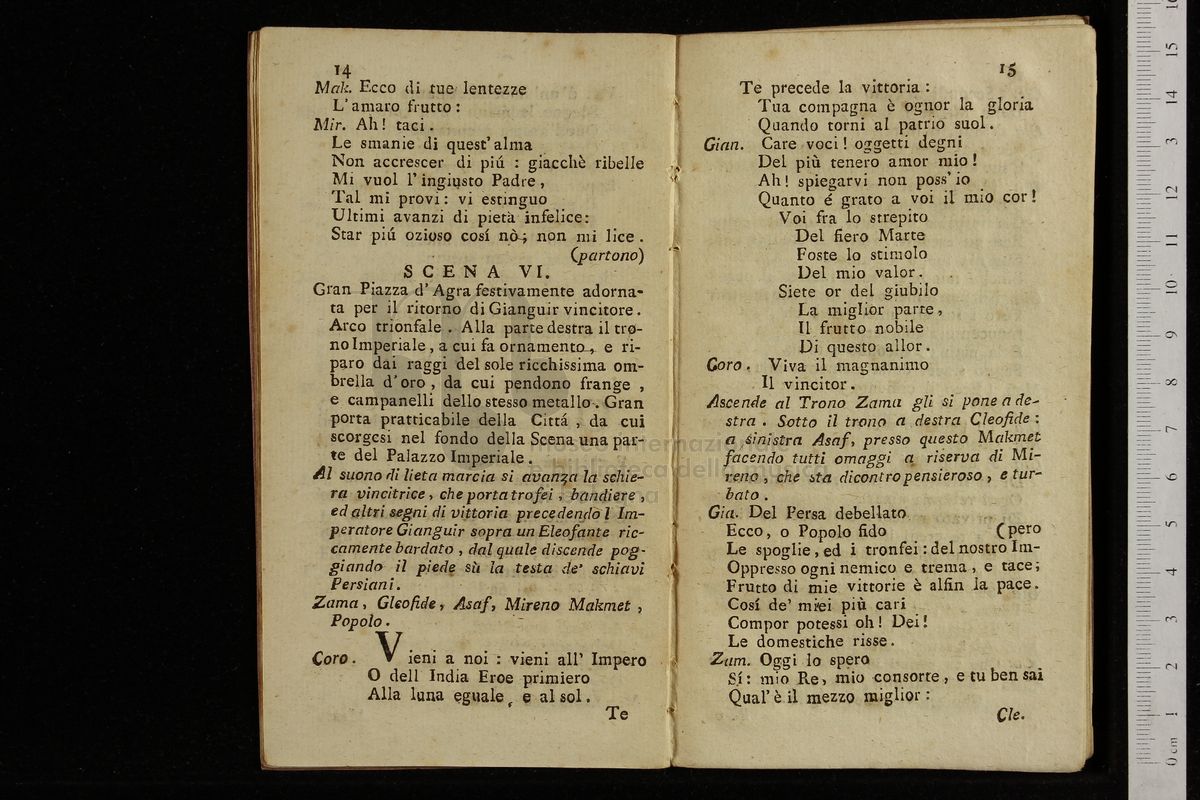 14
Mak. Ecco di tue lentezze
L' amaro frutto :
Mir. Ah! taci.
Le smanie di quest' alma
Non accrescer di piú : giacchè ribelle
Mi vuol l' ingiusto Padre,
Tal mi provi: vi estinguo
Ultimi avanzi di pietà infelice:
Star piú ozioso cosí nò; non mi lice.
(partono)
SCENA VI.
Gran Piazza d' Agra festivamente adorna-
ta per il ritorno di Gianguir vincitore.
Arco trionfale. Alla parte destra il tro-
no Imperiale, a cui fa ornamento, e ri-
paro dai raggi del sole ricchissima om-
brella d'oro, da cui pendono frange,
e campanelli dello stesso metallo. Gran
porta pratticabile della Cittá, da cui
scorgesi nel fondo della Scena una par-
te del Palazzo Imperiale.
Al suono di lieta marcia si avanza la schie-
ra vincitrice, che porta trofei, bandiere,
ed altri segni di vittoria precedendo l Im-
peratore Gianguir sopra un Eleofante ric-
camente bardato, dal quale discende pog-
giando il piede sù la testa de' schiavi
Persiani.
Zama, Gleofide, Asaf, Mireno Makmet,
Popolo.
Coro. Vieni a noi : vieni all' Impero
O dell India Eroe primiero
Alla luna eguale, e al sol.
Te
15
Te precede la vittoria :
Tua compagna è ognor la gloria
Quando torni al patrio suol.
Gian. Care voci! oggetti degni
Del più tenero amor mio!
Ah! spiegarvi non poss' io
Quanto é grato a voi il mio cor!
Voi fra lo strepito
Del fiero Marte
Foste lo stimolo
Del mio valor.
Siete or del giubilo
La miglior parte,
Il frutto nobile
Di questo allor.
Coro. Viva il magnanimo
Il vincitor.
Ascende al Trono Zama gli si pone a de-
stra. Sotto il trono a destra Cleofide :
a sinistra Asaf, presso questo Makmet
facendo tutti omaggi a riserva di Mi-
reno, che sta dicontro pensieroso, e tur-
bato.
Gia. Del Persa debellato
Ecco, o Popolo fido (pero
Le spoglie, ed i tronfei : del nostro Im-
Oppresso ogni nemico e trema, e tace;
Frutto di mie vittorie è alfin la pace.
Cosí de' miei più cari
Compor potessi oh! Dei!
Le domestiche risse.
Zam. Oggi lo spero
Sí: mio Re, mio consorte, e tu ben sai
Qual' è il mezzo miglior :
Cle.